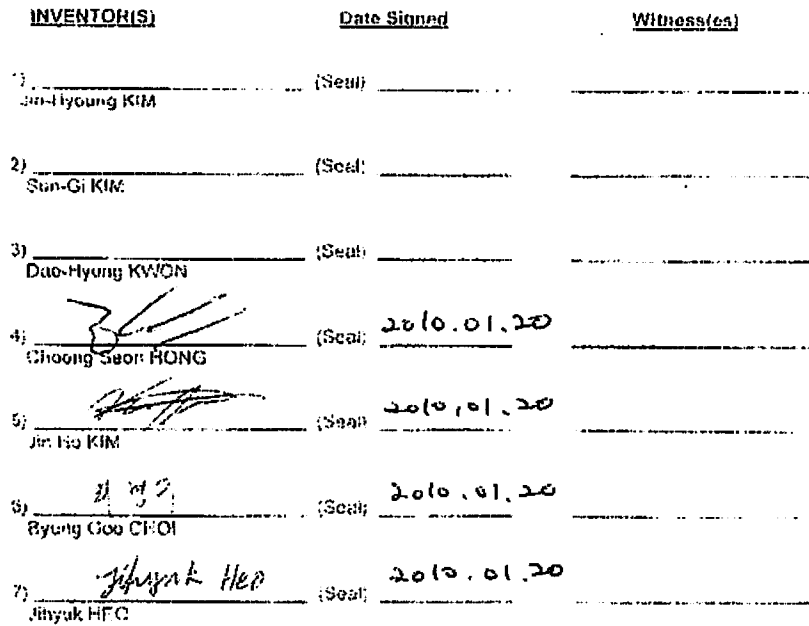 INVENTOR(S) Date Signed Witness(es)
1) (Seal)
Jin-Hyoung KIM
2) (Seal)
Sun-Gi KIM
3) (Seal)
Dae-Hyung KWON
4) (Seal) 2010.01.20
Choong Seon HONG
5) (Seal) 2010.01.20
Jin Ho KIM
6) (Seal) 2010.01.20
Byung Goo CHOI
7) Jihyuk Heo (Seal) 2010.01.20
Jihyuk HEO